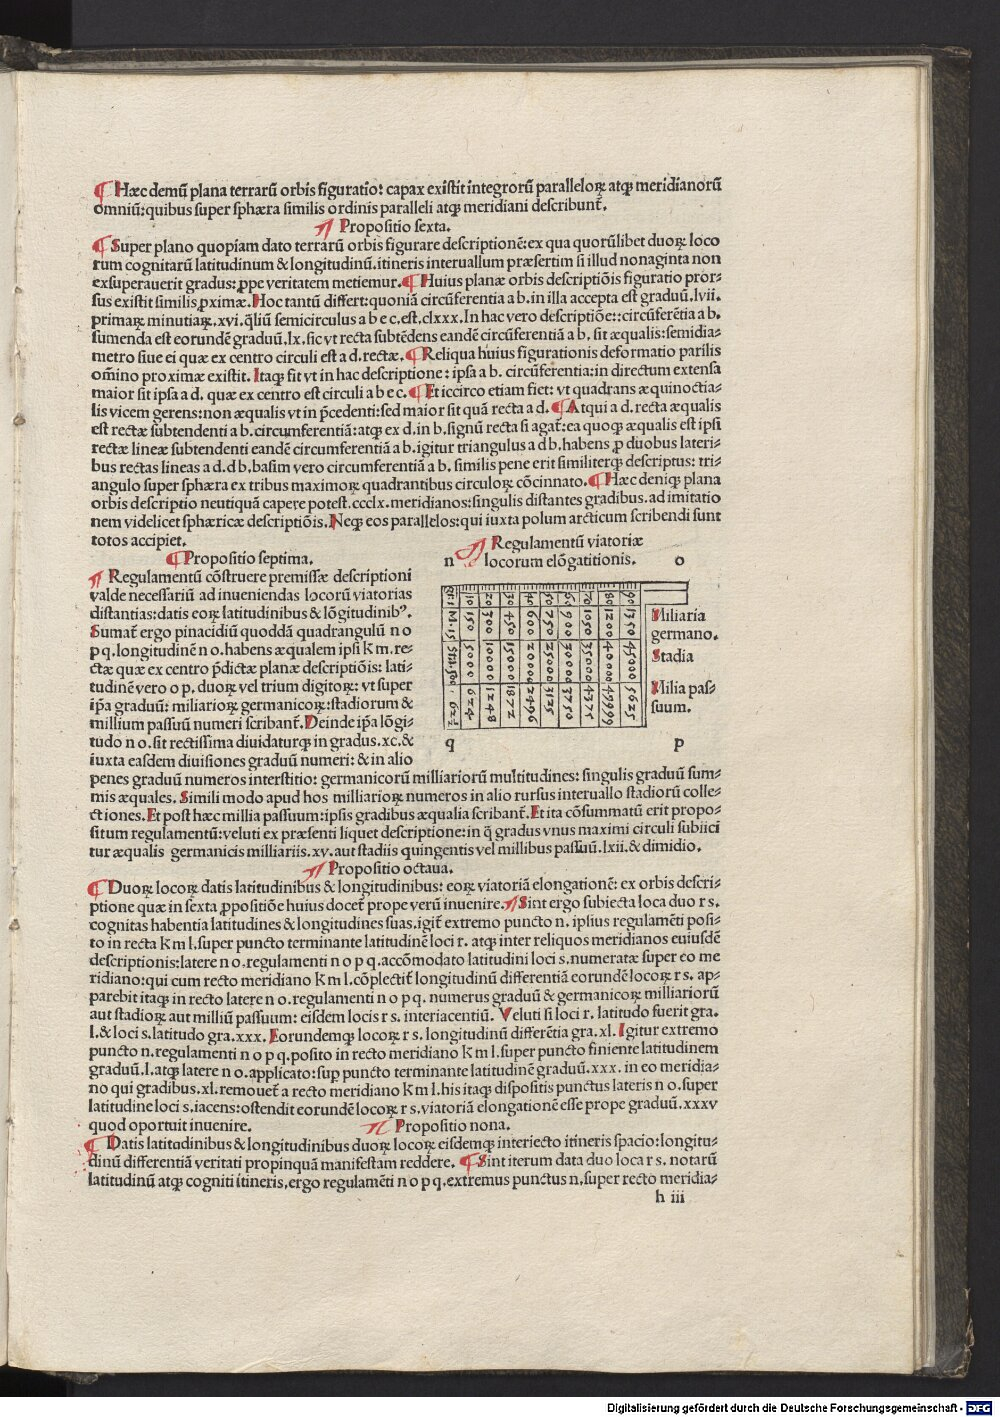 ¶ Hæc demū plana terrarū orbis figuratio: capax existit integrorū paralleloꝝ atqꝫ meridianorū
omniū: quibus super sphæra similis ordinis paralleli atqꝫ meridiani describunt̄.
¶ Propositio sexta.
¶ Super plano quopiam dato terrarū orbis figurare descriptionē: ex qua quorūlibet duoꝝ loco
rum cognitarū latitudinum & longitudinū. itineris interuallum præsertim si illud nonaginta non
exsuperauerit gradus: ꝓpe veritatem metiemur. ¶ Huius planæ orbis descriptiōis figuratio pror⸗
sus existit similis ꝓximæ. Hoc tantū differt: quoniā circūferentia a b. in illa accepta est graduū. lvii.
primaꝝ minutiaꝝ. xvi. q̄liū semicirculus a b e c. est. clxxx. In hac vero descriptiōe:: circūferētia a b.
sumenda est eorundē graduū. lx. sic vt recta subtēdens eandē circūferentiā a b. sit æqualis: semidia⸗
metro siue ei quæ ex centro circuli est a d. rectæ. ¶ Reliqua huius figurationis deformatio parilis
om̄ino proximæ existit. Itaqꝫ fit vt in hac descriptione: ipsa a b. circūferentia: in directum extensa
maior sit ipsa a d. quæ ex centro est circuli a b e c. ¶ Et iccirco etiam fiet: vt quadrans æquinoctia⸗
lis vicem gerens: non æqualis vt in p̄cedenti: sed maior sit quā recta a d. ¶ Atqui a d. recta æqualis
est rectæ subtendenti a b. circumferentiā: atqꝫ ex d. in b. signū recta si agat̄: ea quoqꝫ æqualis est ipsi
rectæ lineæ subtendenti eandē circumferentiā a b. igitur triangulus a d b. habens ꝓ duobus lateri⸗
bus rectas lineas a d. d b. basim vero circumferentiā a b. similis pene erit similiterqꝫ descriptus: tri⸗
angulo super sphæra ex tribus maximoꝝ quadrantibus circuloꝝ cōcinnato. ¶ Hæc deniqꝫ plana
orbis descriptio neutiquā capere potest. ccclx. meridianos: singulis distantes gradibus. ad imitatio
nem videlicet sphæricæ descriptiōis. Neqꝫ eos parallelos: qui iuxta polum arcticum scribendi sunt
totos accipiet.
¶ Propositio septima.
¶ Regulamentū cōstruere premissæ descriptioni
valde necessariū ad inueniendas locorū viatorias
distantias: datis eoꝝ latitudinibus & lōgitudinibꝰ.
Sumat̄ ergo pinacidiū quoddā quadrangulū n o
p q. longitudinē n o. habens æqualem ipsi k m. re⸗
ctæ quæ ex centro p̄dictæ planæ descriptiōis: lati⸗
tudinē vero o p. duoꝝ vel trium digitoꝝ: vt super
ip̄a graduū: miliarioꝝ germanicoꝝ: stadiorum &
millium passuū numeri scribant̄. Deinde ip̄a lōgi⸗
tudo n o. sit rectissima diuidaturqꝫ in gradus. xc. &
iuxta easdem diuisiones graduū numeri: & in alio
¶ Regulamentū viatoriæ
locorum elōgatitionis.
n o
Gr. 1 10 20 30 40 50 60 70 80 90
M. 15 150 300 450 600 750 900 1050 1200 1350
Sta. 500 5000 10000 15000 20000 25000 30000 35000 40000 45000
624 1248 1872 2496 3125 3750 4375 49999 5625
Miliaria
germano.
Stadia
Milia pas⸗
suum.
q p
penes graduū numeros interstitio: germanicorū milliariorū multitudines: singulis graduū sum⸗
mis æquales. Simili modo apud hos milliarioꝝ numeros in alio rursus interuallo stadiorū colle⸗
ctiones. Et post hæc millia passuum: ipsis gradibus æqualia scribant̄. Et ita cōsummatū erit propo⸗
situm regulamentū: veluti ex præsenti liquet descriptione: in q̄ gradus vnus maximi circuli subiici
tur æqualis germanicis milliariis. xv. aut stadiis quingentis vel millibus passuū. lxii. & dimidio.
¶ Propositio octaua.
¶ Duoꝝ locoꝝ datis latitudinibus & longitudinibus: eoꝝ viatoriā elongationē: ex orbis descri⸗
ptione quæ in sexta ꝓpositiōe huius docet̄ prope verū inuenire. ¶ Sint ergo subiecta loca duo r s.
cognitas habentia latitudines & longitudines suas. igit̄ extremo puncto n. ipsius regulamēti posi⸗
to in recta k m l. super puncto terminante latitudinē loci r. atqꝫ inter reliquos meridianos euiusdē
descriptionis: latere n o. regulamenti n o p q. accōmodato latitudini loci s. numeratæ super eo me
ridiano: qui cum recto meridiano k m l. cōplectit̄ longitudinū differentiā eorundē locoꝝ r s. ap⸗
parebit itaqꝫ in recto latere n o. regulamenti n o p q. numerus graduū & germanicoꝝ milliariorū
aut stadioꝝ aut milliū passuum: eisdem locis r s. interiacentiū. Veluti si loci r. latitudo fuerit gra.
l. & loci s. latitudo gra. xxx. Eorundemqꝫ locoꝝ r s. longitudinū differētia gra. xl. Igitur extremo
puncto n. regulamenti n o p q. posito in recto meridiano k m l. super puncto finiente latitudinem
graduū. l. atqꝫ latere n o. applicato: suꝑ puncto terminante latitudinē graduū. xxx. in eo meridia⸗
no qui gradibus. xl. remouet̄ a recto meridiano k m l. his itaqꝫ dispositis punctus lateris n o. super
latitudine loci s. iacens: ostendit eorundē locoꝝ r s. viatoriā elongationē esse prope graduū. xxxv
quod oportuit inuenire.
¶ Propositio nona.
¶ Datis latitudinibus & longitudinibus duoꝝ locoꝝ eisdemqꝫ interiecto itineris spacio: longitu⸗
dinū differentiā veritati propinquā manifestam reddere. ¶ Sint iterum data duo loca r s. notarū
latitudinū atqꝫ cogniti itineris, ergo regulamēti n o p q. extremus punctus n. super recto meridia⸗
h iii
Digitalisierung gefördert durch die Deutsche Forschungsgemeinschaft - DFG